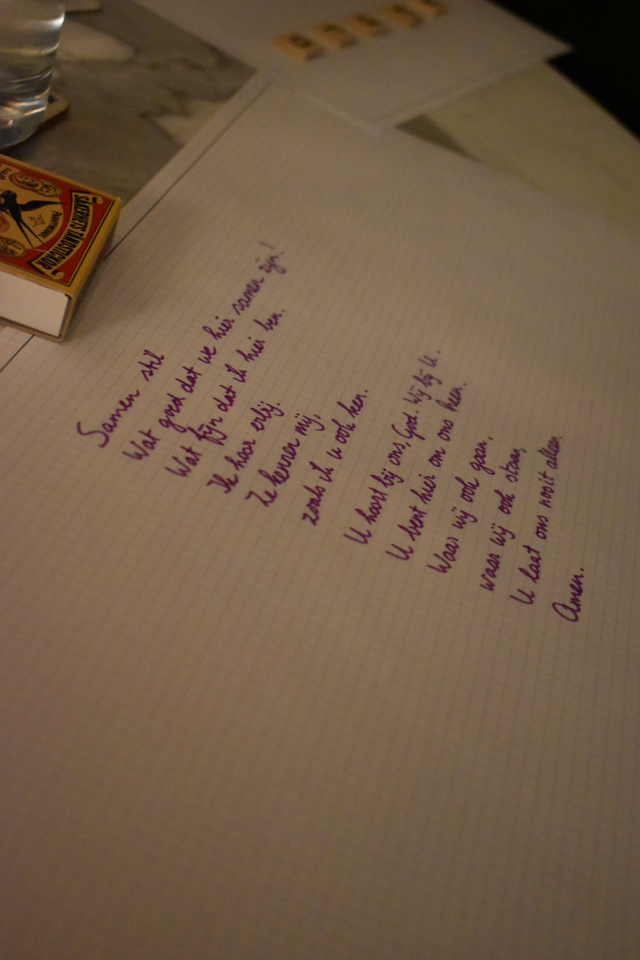 SÄKERHETS TÄNDSTICKOR
Samen stil
Wat goed dat we hier samen zijn!
Wat fijn dat ik hier ben.
Ik hoor erbij.
Ze kennen mij,
zoals ik u ook ken.
U hoort bij ons, God. Wij bij U.
U bent hier om ons heen.
Waar wij ook gaan,
waar wij ook staan,
U laat ons nooit alleen.
Amen.